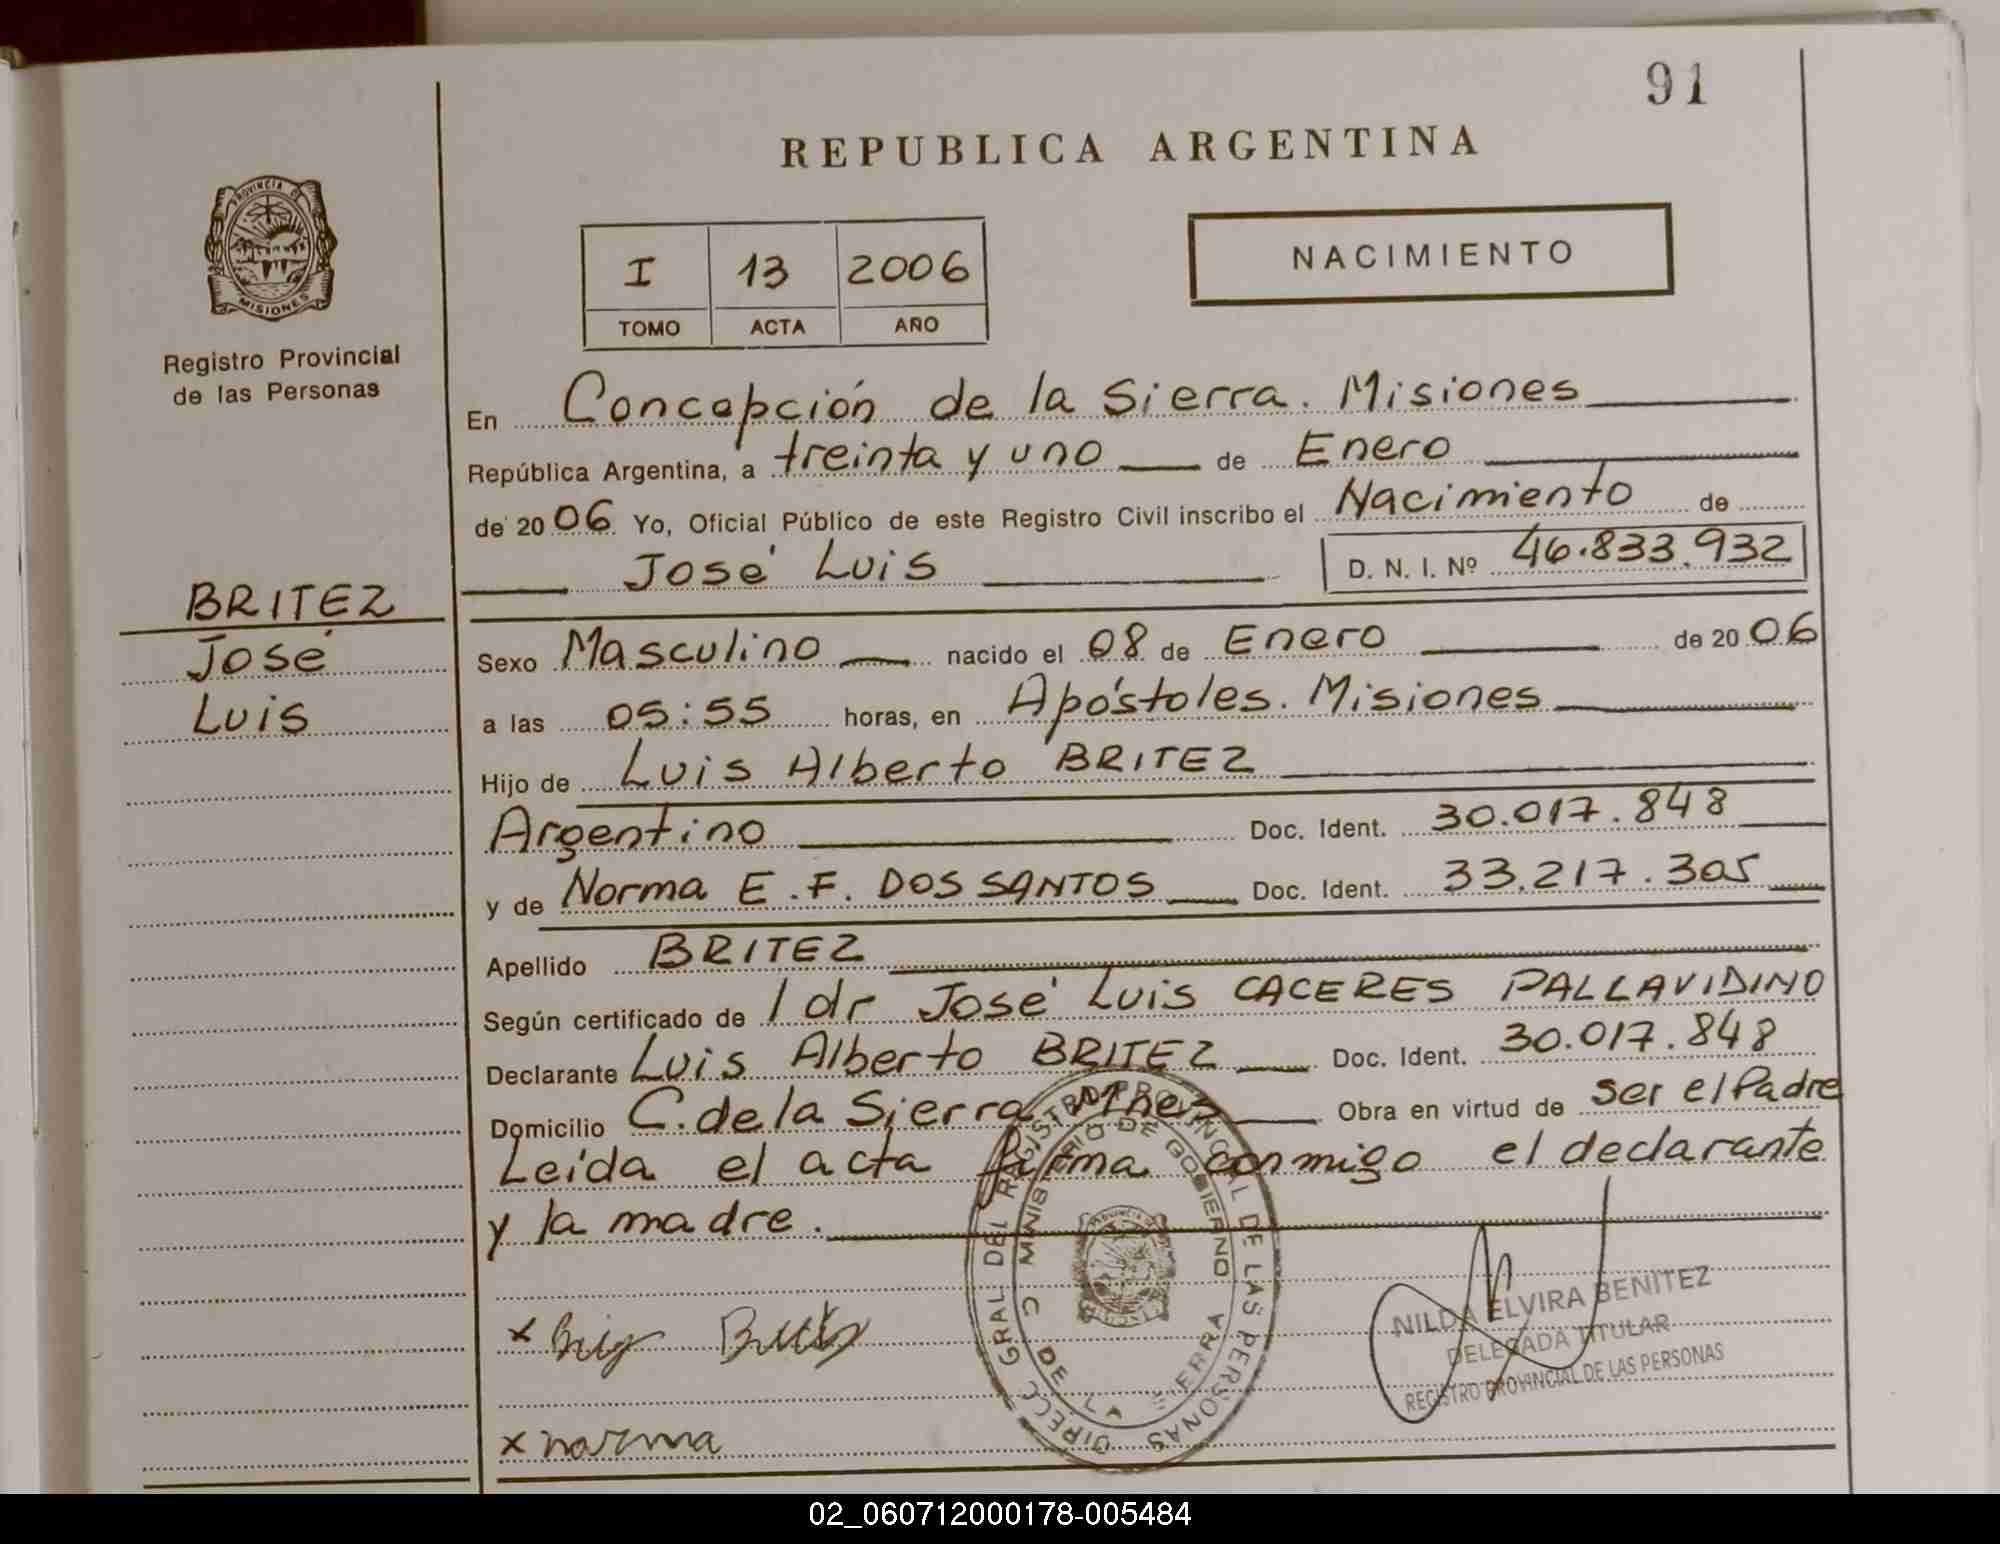 91
REPUBLICA ARGENTINA
PROVINCIA DE
MISIONES
Registro Provincial
de las Personas
I 13 2006
TOMO ACTA AÑO
NACIMIENTO
BRITEZ
José
Luis
En Concepción de la Sierra. Misiones
República Argentina, a treinta y uno de Enero
de 2006 Yo, Oficial Público de este Registro Civil inscribo el Nacimiento de
José Luis D. N. I. Nº 46.833.932
Sexo Masculino nacido el 08 de Enero de 2006
a las 05:55 horas, en Apóstoles. Misiones
Hijo de Luis Alberto BRITEZ
Argentino Doc. Ident. 30.017.848
y de Norma E. F. DOS SANTOS Doc. Ident. 33.217.305
Apellido BRITEZ
Según certificado de l dr José Luis CACERES PALLAVIDINO
Declarante Luis Alberto BRITEZ Doc. Ident. 30.017.848
Domicilio C. de la Sierra Mnes Obra en virtud de ser el Padre
Leída el acta firma conmigo el declarante
y la madre.
DIRECC GRAL DEL REGISTRO PROVINCIAL DE LAS PERSONAS
MINISTERIO DE GOBIERNO
C DE LA SIERRA
x
x norma
NILDA ELVIRA BENITEZ
DELEGADA TITULAR
REGISTRO PROVINCIAL DE LAS PERSONAS
02_060712000178-005484